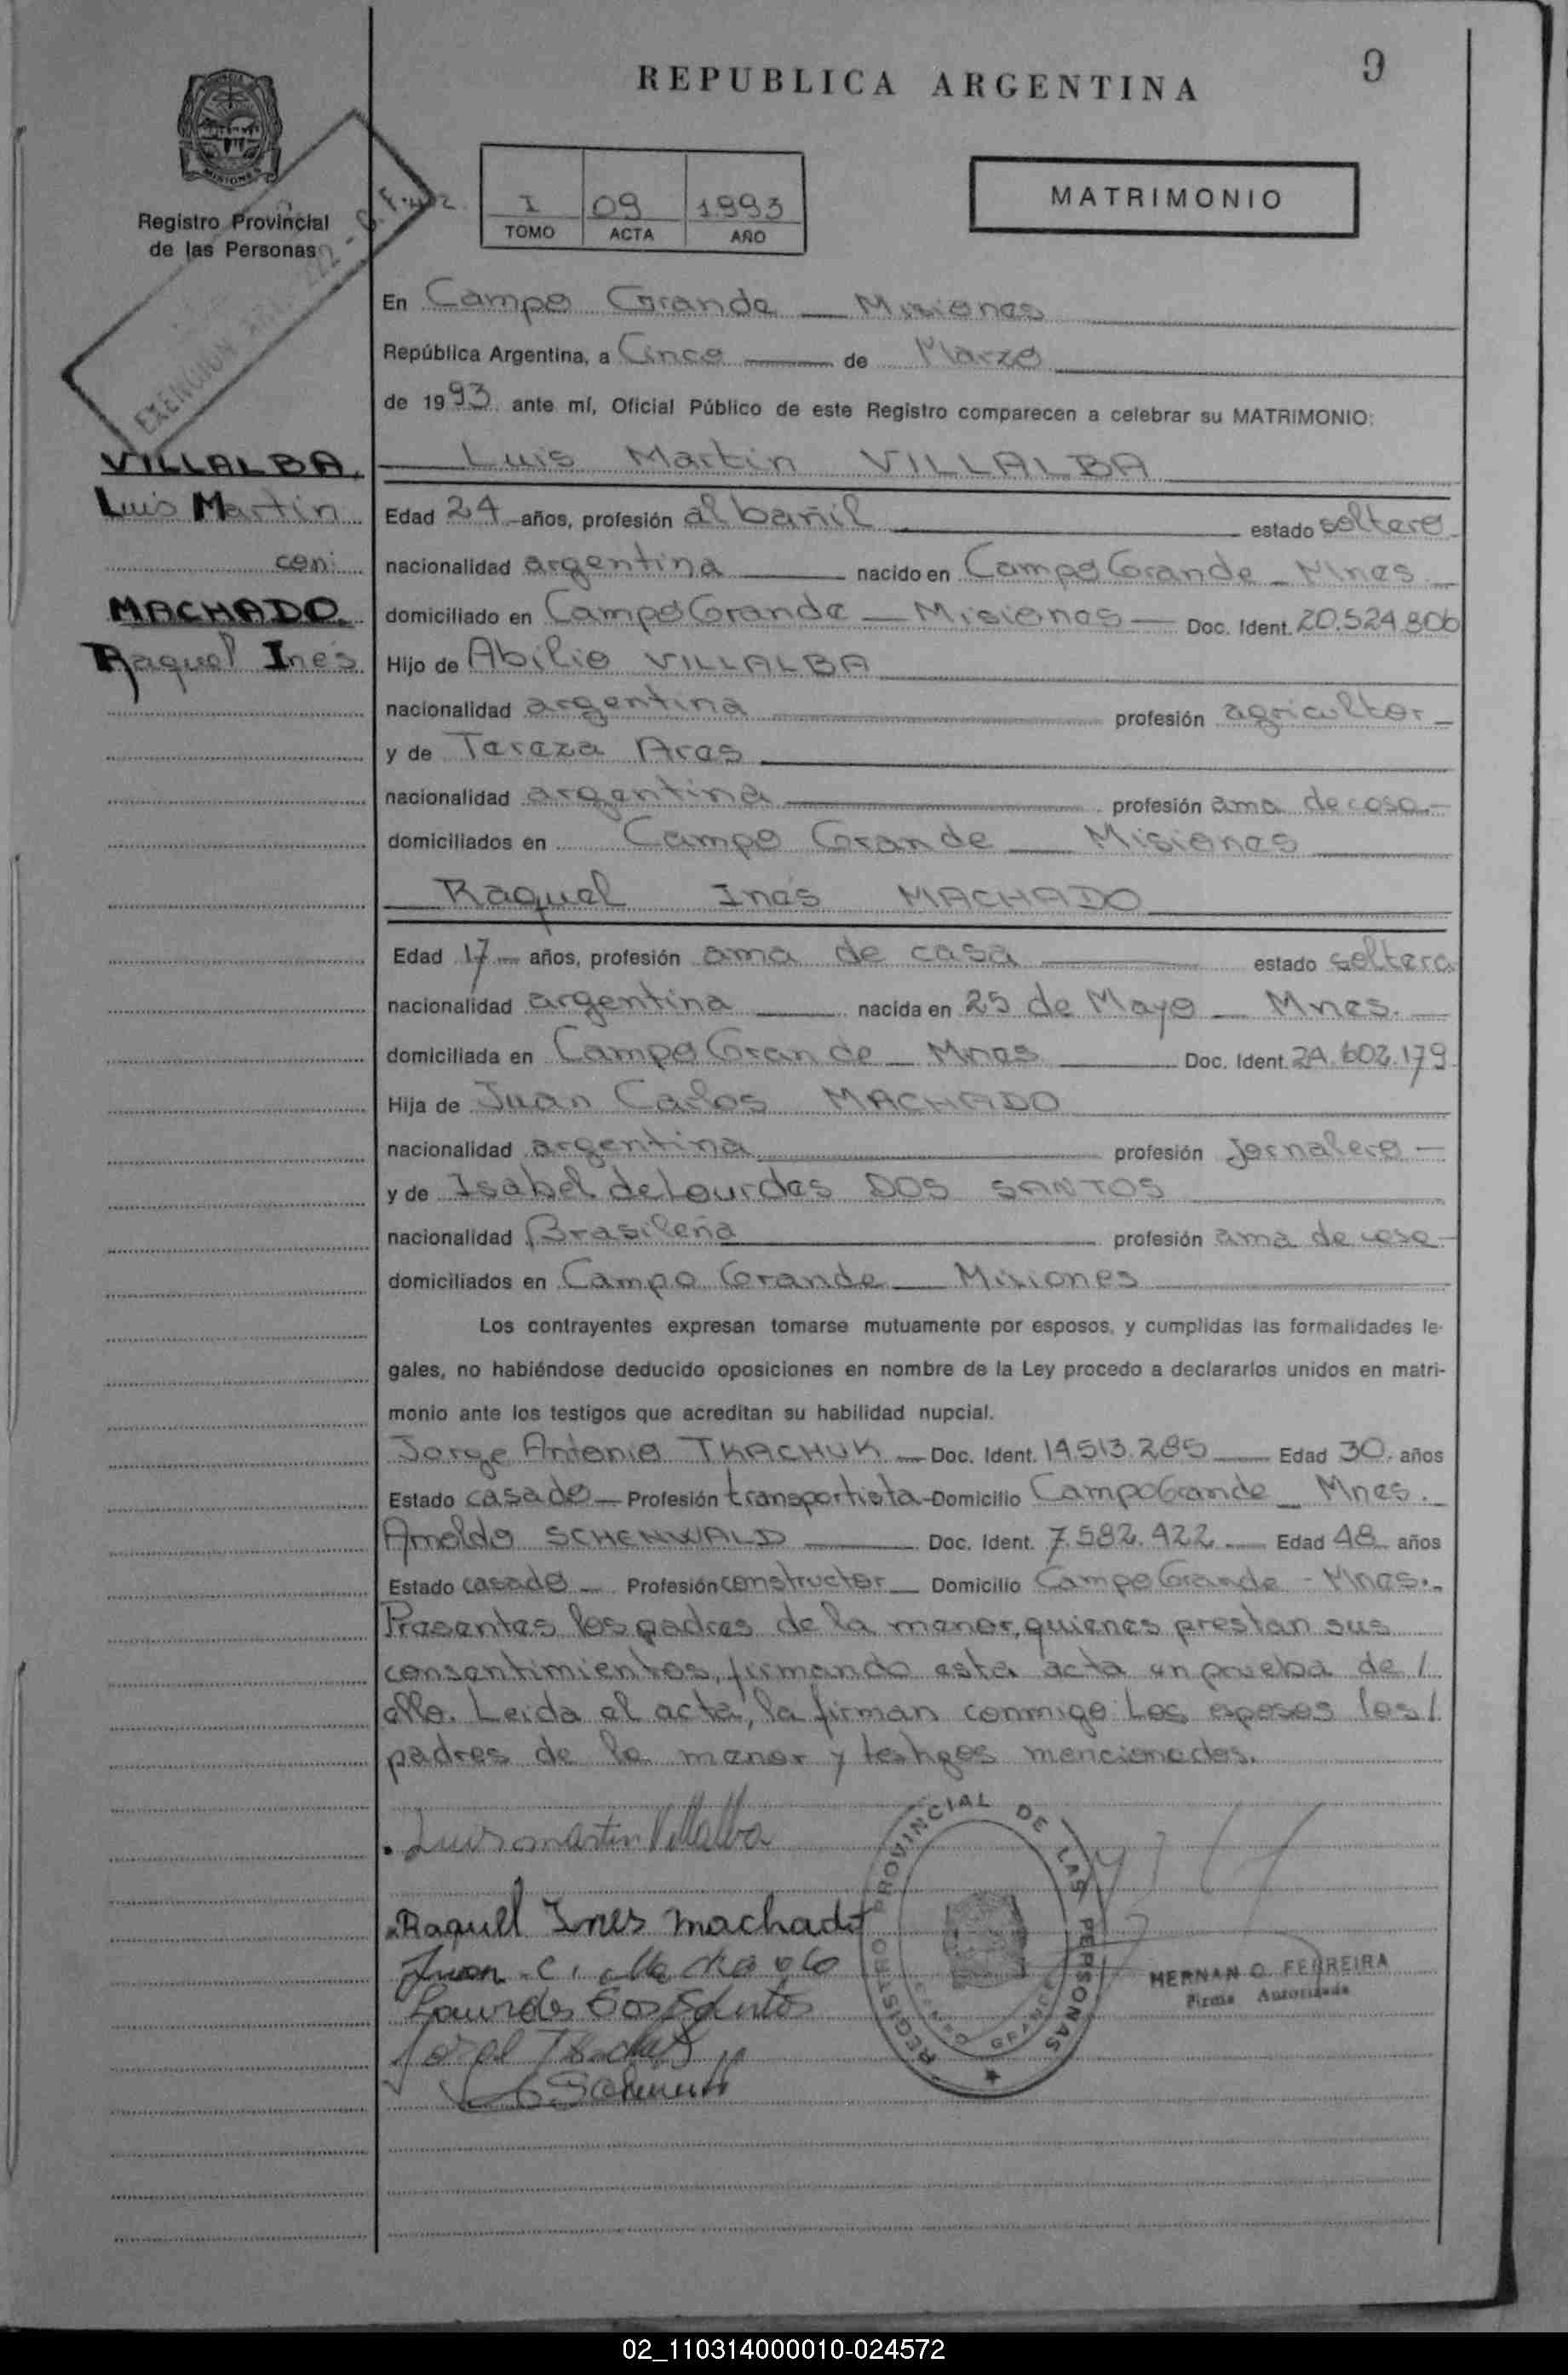 9
REPUBLICA ARGENTINA
MISIONES
Registro Provincial
de las Personas
I 09 1993
TOMO ACTA AÑO
MATRIMONIO
EXENCION
En Campo Grande — Misiones
República Argentina, a Cinco — de Marzo
de 1993 ante mí, Oficial Público de este Registro comparecen a celebrar su MATRIMONIO:
VILLALBA
Luis Martin
con:
MACHADO
Raquel Inés
Luis Martin VILLALBA
Edad 24 años, profesión albañil estado soltero
nacionalidad argentina nacido en Campo Grande - Mnes
domiciliado en Campo Grande — Misiones — Doc. Ident. 20.524.806
Hijo de Abilio VILLALBA
nacionalidad argentina profesión agricultor
y de Tereza Aras
nacionalidad argentina profesión ama de casa.-
domiciliados en Campo Grande — Misiones
Raquel Inés MACHADO
Edad 17 años, profesión ama de casa estado soltera
nacionalidad argentina nacida en 25 de Mayo — Mnes.
domiciliada en Campo Grande — Mnes Doc. Ident. 24.602.179
Hija de Juan Carlos MACHADO
nacionalidad argentina profesión Jornalero —
y de Isabel de Lourdes DOS SANTOS
nacionalidad Brasileña profesión ama de casa-
domiciliados en Campo Grande — Misiones
Los contrayentes expresan tomarse mutuamente por esposos, y cumplidas las formalidades le-
gales, no habiéndose deducido oposiciones en nombre de la Ley procedo a declararlos unidos en matri-
monio ante los testigos que acreditan su habilidad nupcial.
Jorge Antonio TKACHUK — Doc. Ident. 14.513.285 — Edad 30. años
Estado casado — Profesión transportista - Domicilio Campo Grande — Mnes.
Arnoldo SCHENWALD Doc. Ident. 7.582.422 — Edad 48 años
Estado casado — Profesión constructor — Domicilio Campo Grande - Mnes.
Presentes los padres de la menor, quienes prestan sus
consentimientos, firmando esta acta en prueba de /
ello. Leida el acta, la firman conmigo los esposos los /
padres de la menor y testigos mencionados.
Luis martin Villalba
Raquel Ines Machado
Juan C. Machado
Lourdes Dos Santos
REGISTRO PROVINCIAL DE LAS PERSONAS
CAMPO GRANDE
HERNAN O. FERREIRA
Firma Autorizada
02_110314000010-024572